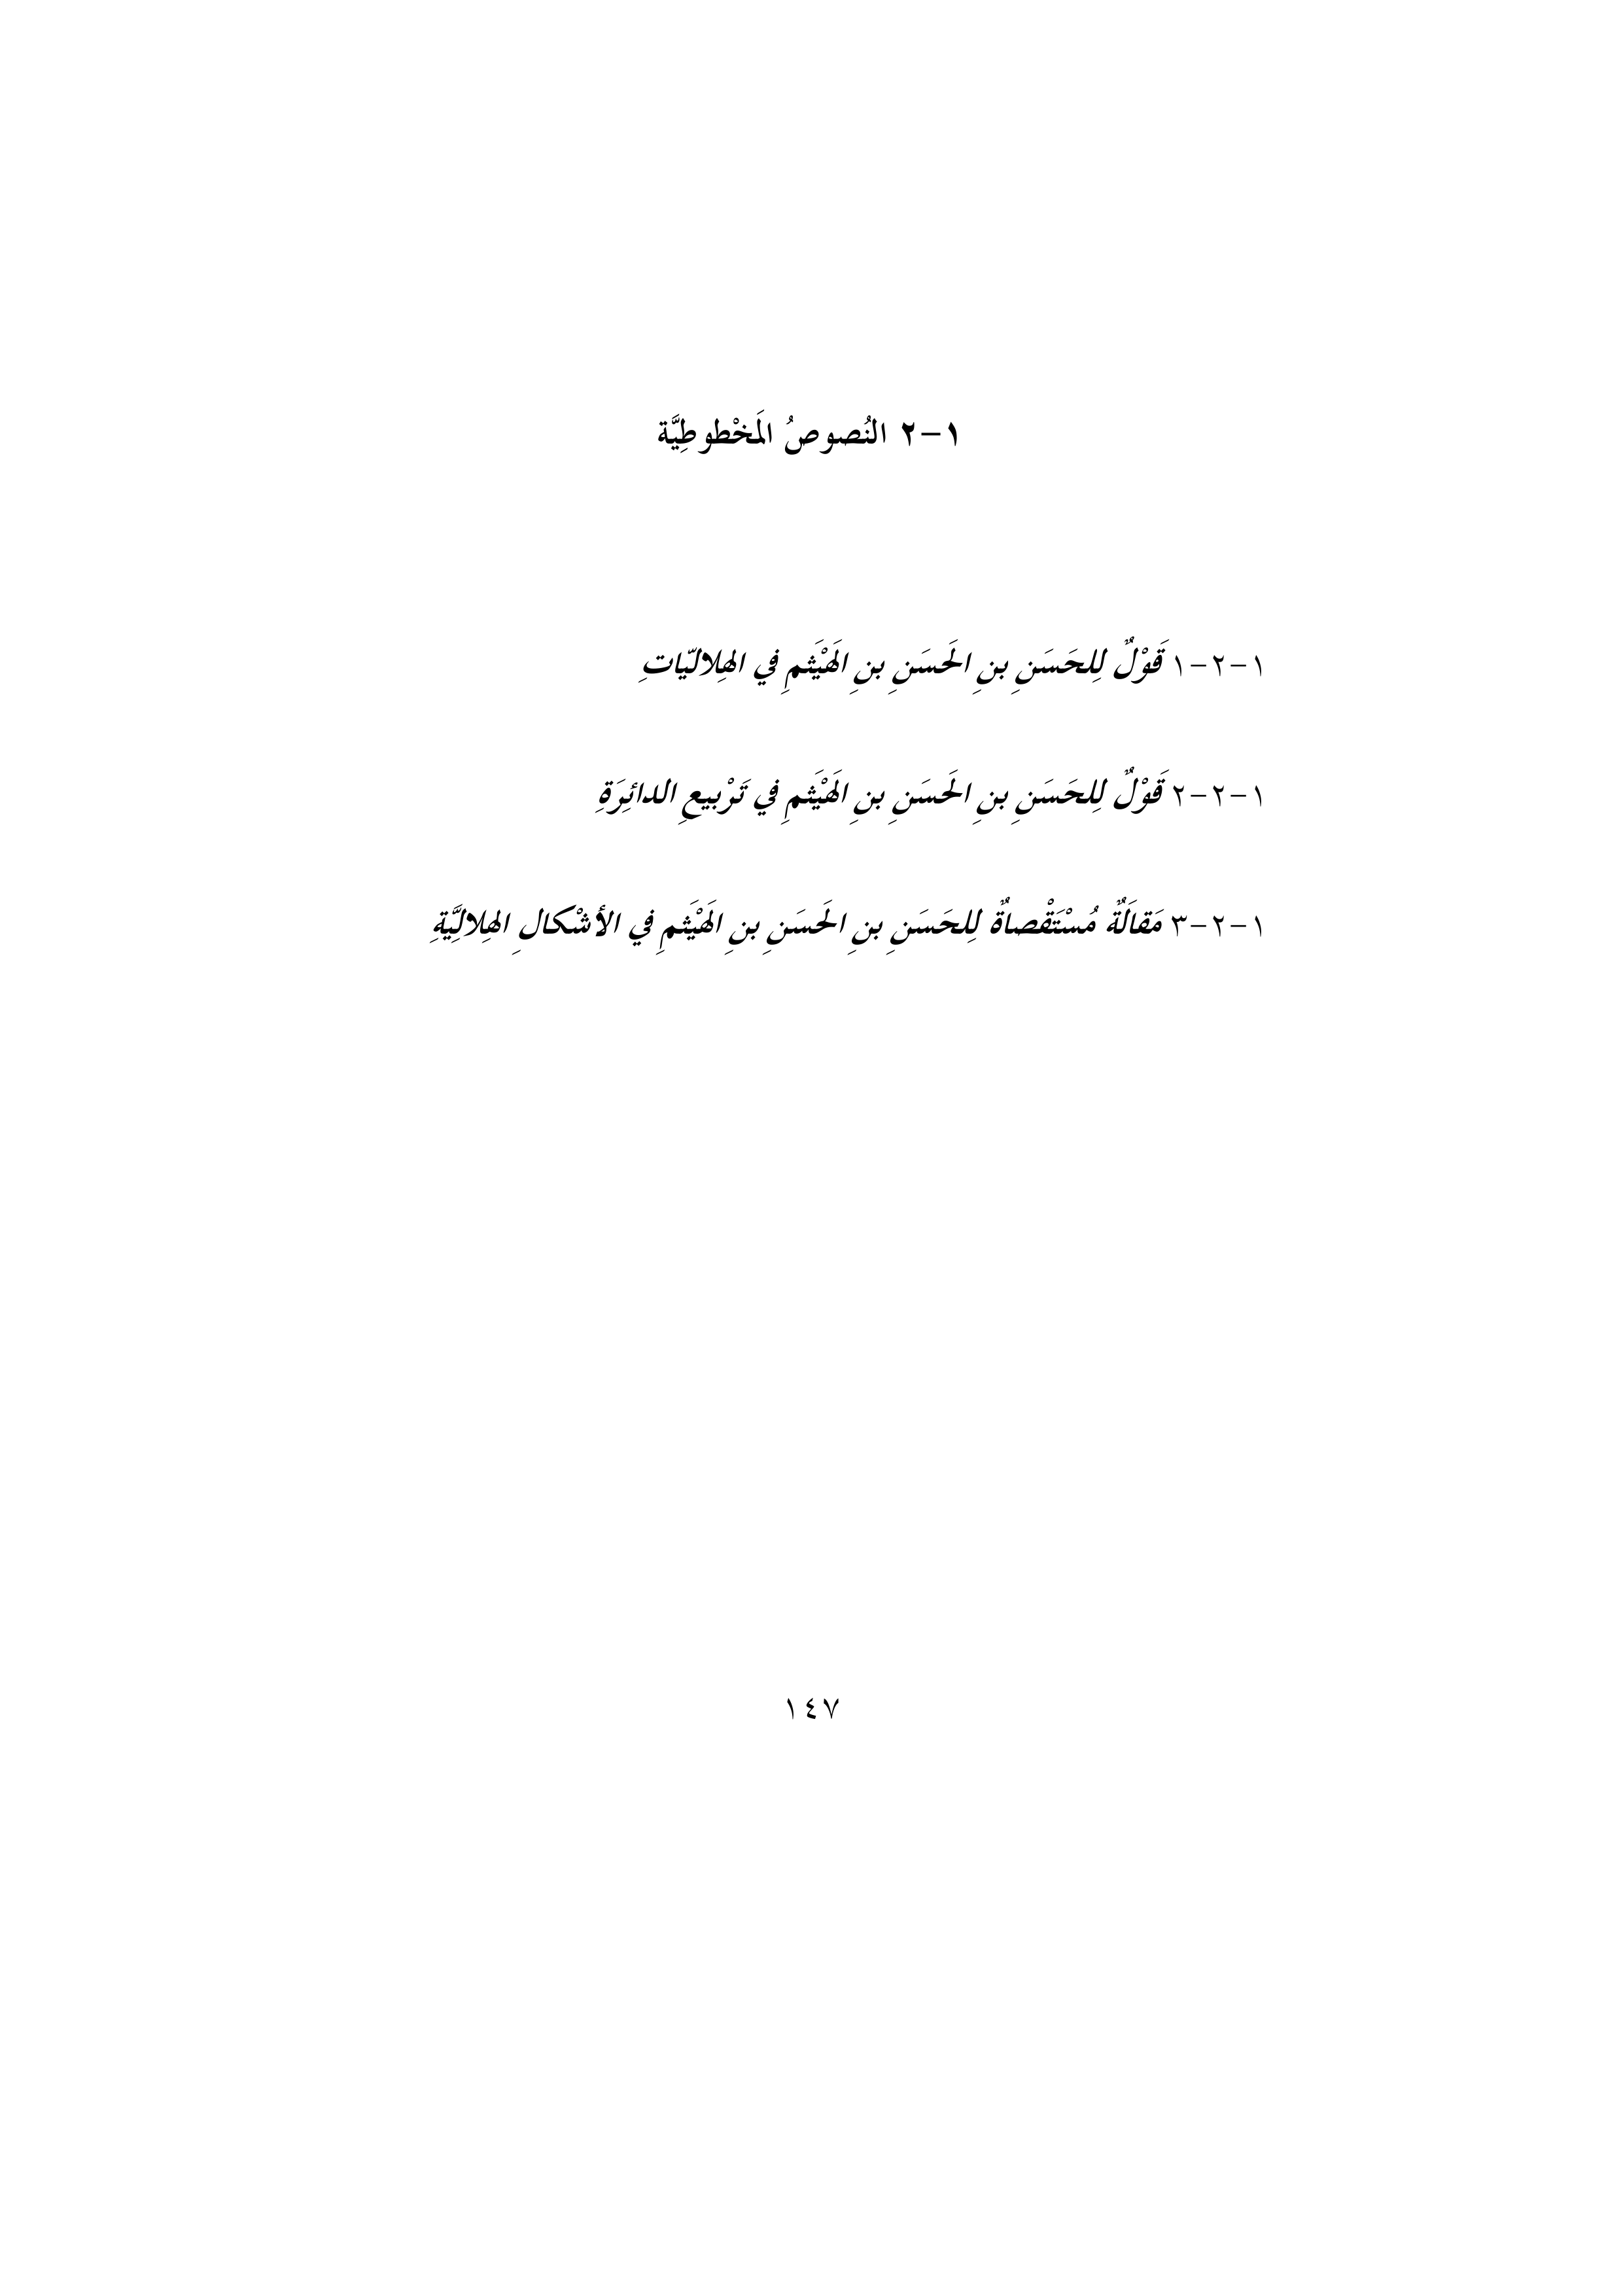 ١-٢ النُصوصُ المَخْطوطِيَّة
١-٢-١ قَوْلٌ لِلحَسَنِ بنِ الحَسَنِ بنِ الهَيْثَمِ في الهِلاليّاتِ
١-٢-٢ قَوْلٌ لِلحَسَنِ بنِ الحَسَنِ بنِ الهَيْثَمِ في تَرْبيعِ الدائِرَةِ
١-٢-٣ مَقالَةٌ مُسْتَقْصاةٌ لِلحَسَنِ بنِ الحَسَنِ بنِ الهَيْثَمِ في الأشْكالِ الهِلالِيَّةِ
١٤٧